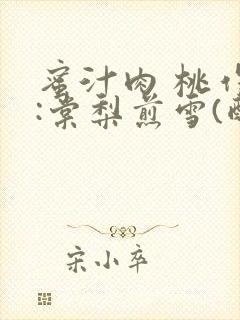 蜜汁肉桃作
:棠梨煎雪(
宋小卒